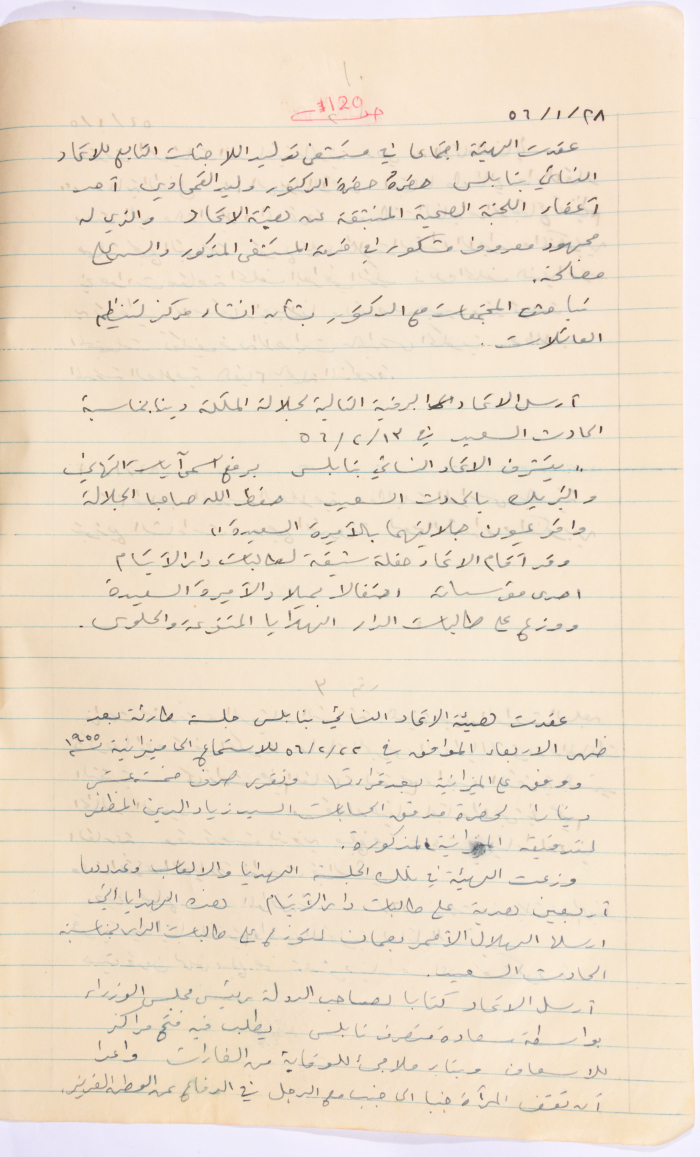 ص 1120
٥٦/١/٢٨
عقدت الهيئة اجتماعا في مستشفى توليد اللاجئات التابع للاتحاد
النسائي بنابلس حضره حضرة الدكتور وليد القمحاوي أحد
أعضاء اللجنة الصحية المنبثقة عن هيئة الاتحاد والذي له
مجهود معروف مشكور في خدمة المستشفى المذكور والسير على
مصالحه.
تباحثت المجتمعات مع الدكتور بشأن انشاء مركز لتنظيم
العائلات.
أرسل الاتحاد البرقية التالية لجلالة الملكة دينا بمناسبة
الحادث السعيد في ٥٦/٢/١٣
" يتشرف الاتحاد النسائي بنابلس برفع اسمى آيات التهاني
والتبريك بالحادث السعيد حفظ الله صاحبا الجلالة
واقر عيون جلالتيهما بالأميرة السعيدة "
وقد أقام الاتحاد حفلة شيقة لطالبات دار الأيتام
احدى مؤسساته احتفالا بميلاد الأميرة السعيدة
ووزع على طالبات الدار الهدايا المتنوعة والحلوى.
رقم ٣
عقدت هيئة الاتحاد النسائي بنابلس جلسة طارئة بعد
ظهر الاربعاء الموافق في ٥٦/٢/٢٢ للاستماع الى ميزانية سنة ١٩٥٥
ووفق على الميزانية بعد قراءتها وتقرر صرف خمسة عشر
دينارا لحضرة مدقق الحسابات السيد زياد الدين المظفر
لتدقيقه الميزانية المذكورة.
وزعت الهيئة في تلك الجلسة الهدايا والالعاب وعددها
أربعين هدية على طالبات دار الأيتام هذه الهدايا التي
ارسلها الهلال الأحمر بعمان لتوزع على طالبات الدار بمناسبة
الحادث السعيد.
أرسل الاتحاد كتابا لصاحب الدولة رئيس مجلس الوزراء
بواسطة سعادة متصرف نابلس يطلب فيه فتح مراكز
للاسعاف وبناء ملاجئ للوقاية من الغارات
أن تقف المرأة جنبا الى جنب مع الرجل في الدفاع عن الوطن العزيز.